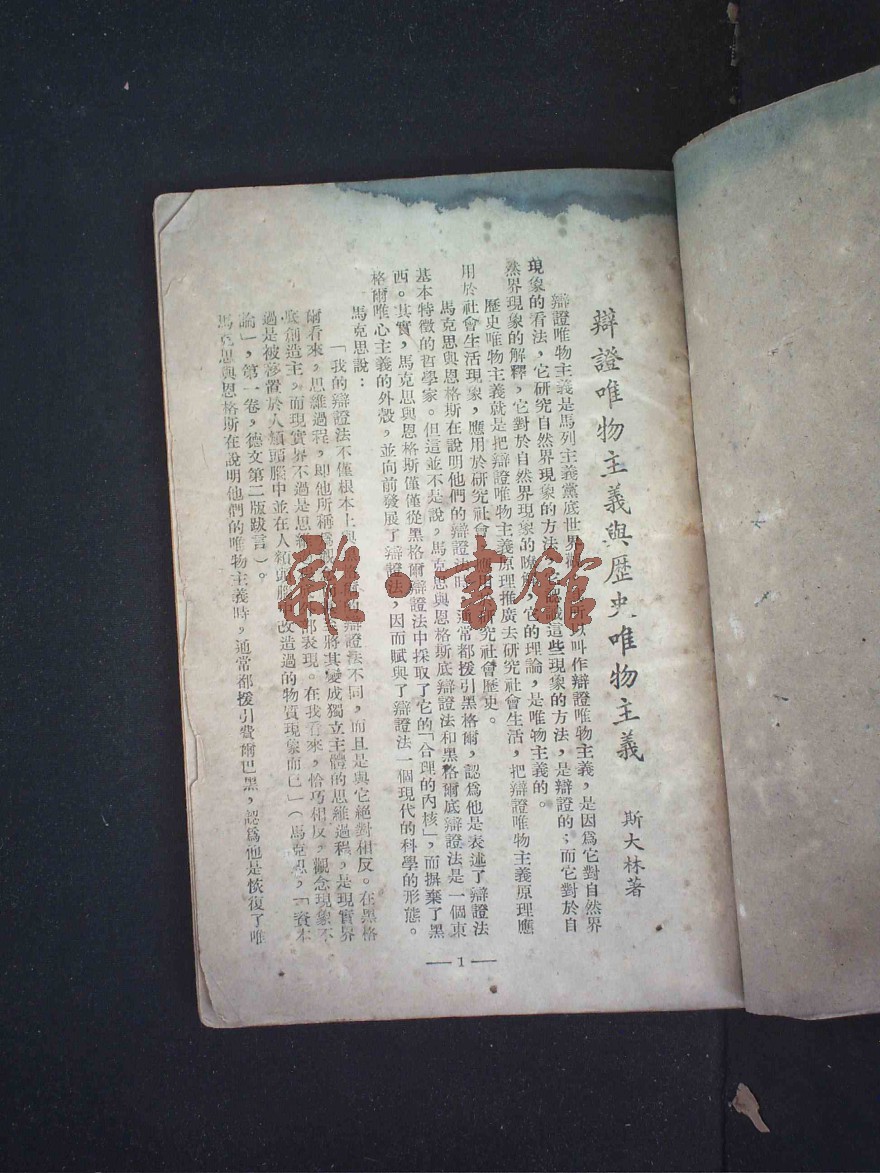 辯證唯物主義與歷史唯物主義
斯大林著
辯證唯物主義是馬列主義黨底世界所以叫作辯證唯物主義，是因爲它對自然界
現象的看法，它研究自然界現象的方法認識這些現象的方法，是辯證的；而它對於自
然界現象的解釋，它對於自然界現象的瞭它的理論，是唯物主義的。
歷史唯物主義就是把辯證唯物主義原理推廣去研究社會生活，把辯證唯物主義原理應
用於社會生活現象，應用於研究社會應用研究社會歷史。
馬克思與恩格斯在說明他們的辯證法時通常都援引黑格爾，認爲他是表述了辯證法
基本特徵的哲學家。但這並不是說，馬克思與恩格斯底辯證法和黑格爾底辯證法是一個東
西。其實，馬克思與恩格斯僅僅從黑格爾辯證法中採取了它的「合理的內核」，而摒棄了黑
格爾唯心主義的外殼，並向前發展了辯證法，因而賦與了辯證法一個現代的科學的形態。
馬克思說：
「我的辯證法不僅根本上與黑辯證法不同，而且是與它絕對相反。在黑格
爾看來，思維過程，即他所稱爲觀將其變成獨立主體的思維過程，是現實界
底創造主，而現實界不過是思維部表現。在我看來，恰巧相反，觀念現象不
過是被移置於人類頭腦中並在人類頭腦中改造過的物質現象而已」（馬克思，「資本
論」，第一卷，德文第二版跋言）。
馬克思與恩格斯在說明他們的唯物主義時，通常都援引費爾巴黑，認爲他是恢復了唯
— 1 —
雜·書館